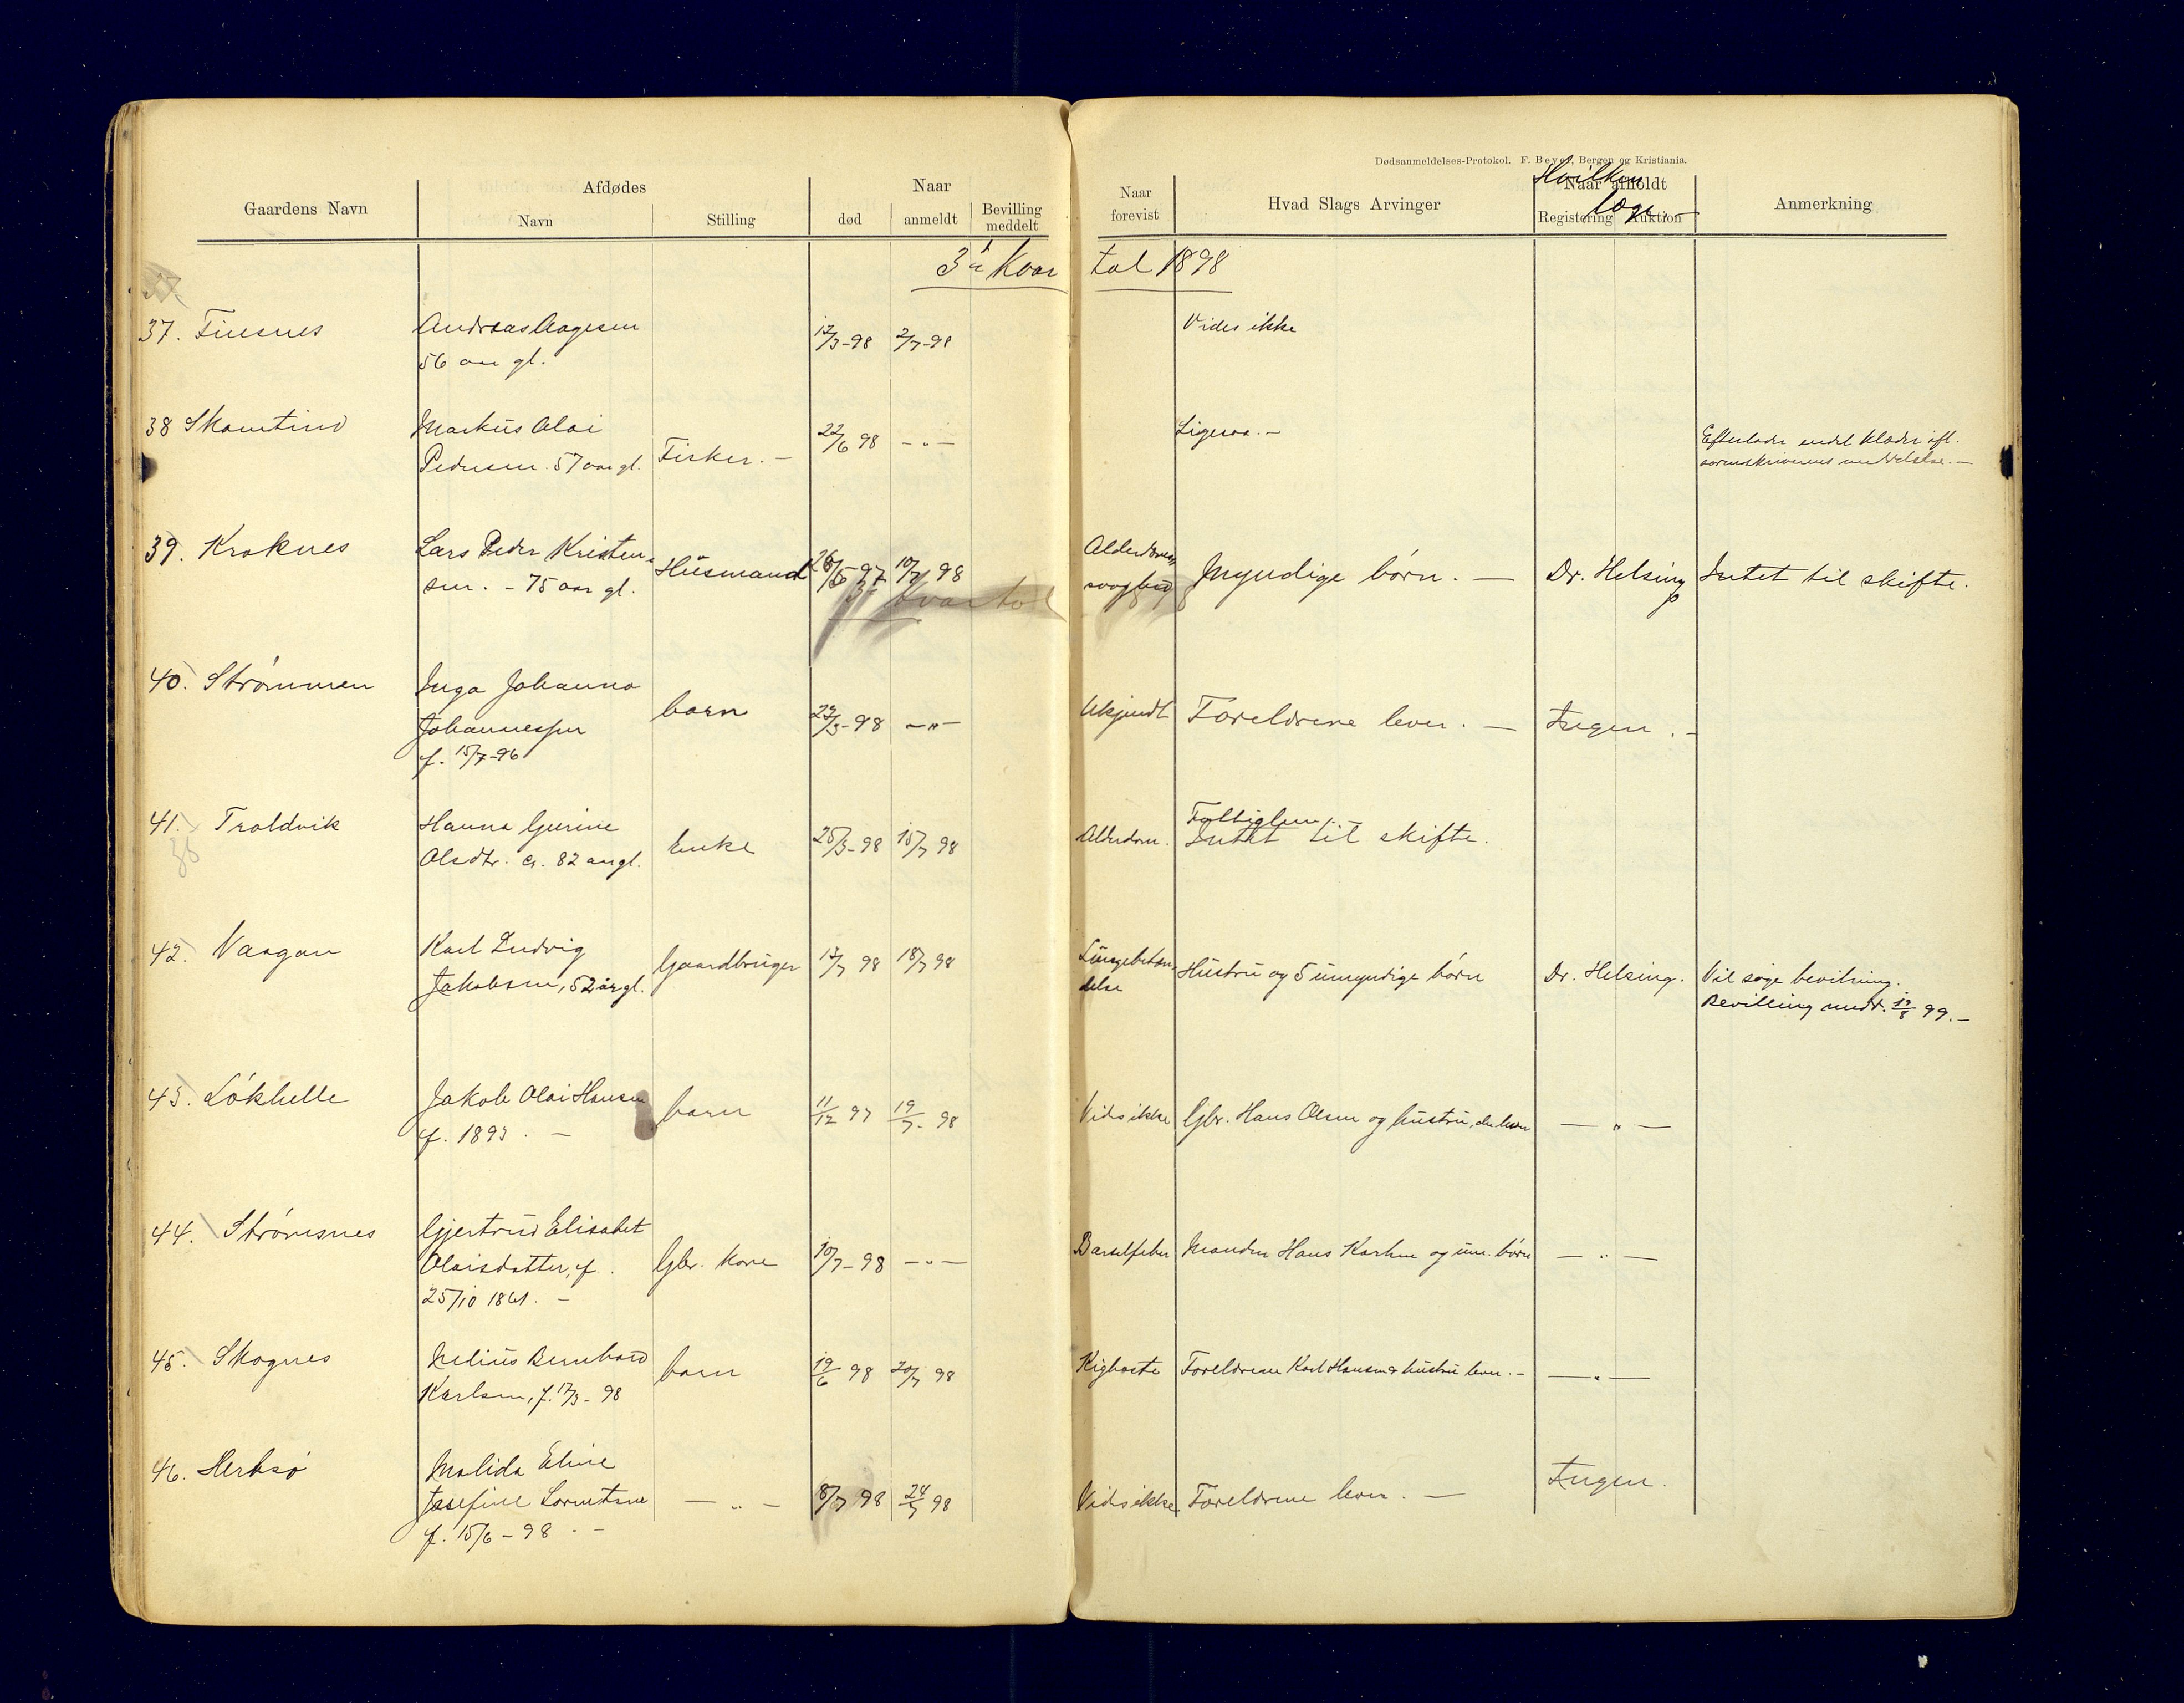 Dødsanmeldelses-Protokol. F. Beyer, Bergen og Kristiania.
Gaardens Navn
Afdødes
Navn
Stilling
Naar
død
anmeldt
Bevilling
meddelt
Naar
forevist
Hvad Slags Arvinger
Hvilken
læge.
Naar afholdt
Registering
Auktion
Anmerkning
3die Kvartal 1898
37. Finsnes
Andreas Aagesen
56 aar gl.
12/3-98
2/7-98
Vides ikke
38 Skamtind
Markus Olai
Pedersen. 57 aar gl.
Fisker. -
22/6 98
- " -
Ligesaa. -
Efterlader endel klæder ifl.
sorenskriverens meddelelse. -
39. Kroknes
Lars Peder Kristen-
sen. - 75 aar gl.
Husmand
26/5-97
10/7 98
Kvartal
Alderdoms
svaghed
Myndige børn. -
Dr. Helsing
Intet til skifte.
40. Strømmen
Inga Johanna
Johannessen
f. 15/7-96
barn
22/3-98
- " -
Ukjendt
Forældrene lever. -
Ingen. -
41. Troldvik
38
Hanna Gurine
Olsdtr. ca. 82 aar gl.
Enke
25/3-98
15/7 98
Alderdom.
Fattiglem.
Intet til skifte.
42. Vaagan
Karl Ludvig
Jakobsen, 52 år gl.
Gaardbruger
12/7 98
18/7 98
Lungebetæn-
delse
Hustru og 5 umyndige børn
Dr. Helsing.
Vil søge bevilning.
Bevilling medd. 19/8 99. -
43. Løkhelle
Jakob Olai Hansen
f. 1893. -
barn
11/12 97
19/7-98
Vides ikke
Gbr. Hans Olsen og hustru, der lever
- " -
44. Strømsnes
Gjertrud Elisabet
Olaisdatter, f.
25/10 1861. -
Gbr. kone
10/7-98
- " -
Barselfeber
Manden Hans Karlsen og um. børn
- " -
45. Skognes
Nelius Bernhard
Karlsen, f. 17/3-98
barn
19/6 98
20/7 98
Kighoste
Forældrene Karl Hansen & hustru lever. -
- " -
46. Sletsø
Malida Eline
Josefine Lorentsen
f. 15/6-98. -
- " -
8/7 98
24/7 98
Vides ikke
Forældrene lever. -
Ingen.